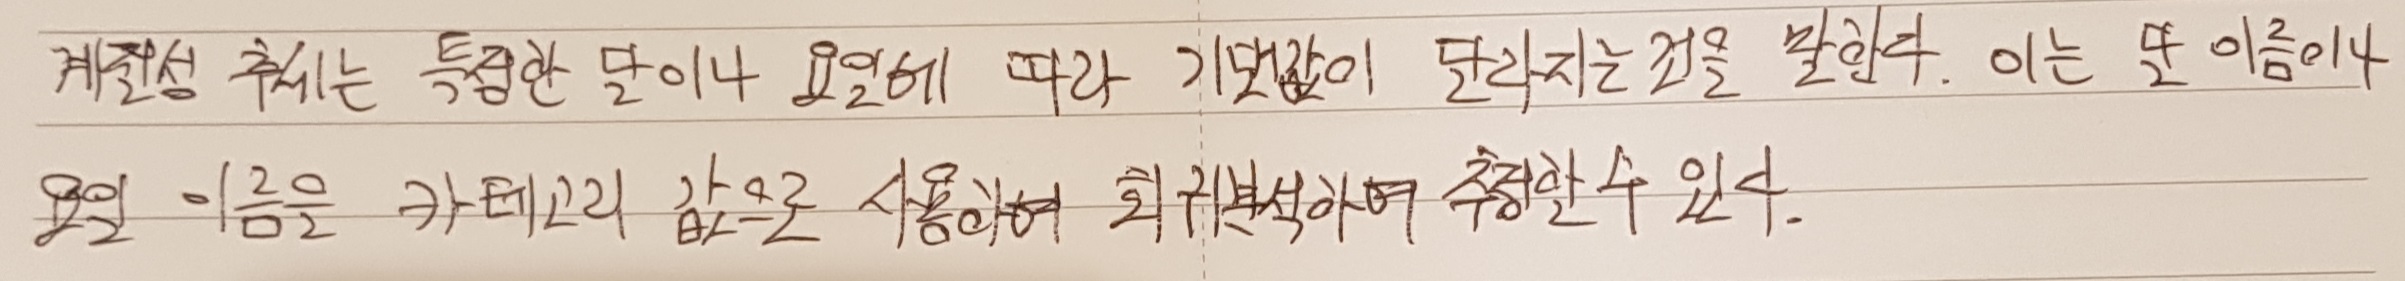 계절성 추세는 특정한 달이나 요일에 따라 기댓값이 달라지는 것을 말한다. 이는 달 이름이나
요일 이름을 카테고리 값으로 사용하여 회귀분석하여 추정할 수 있다.